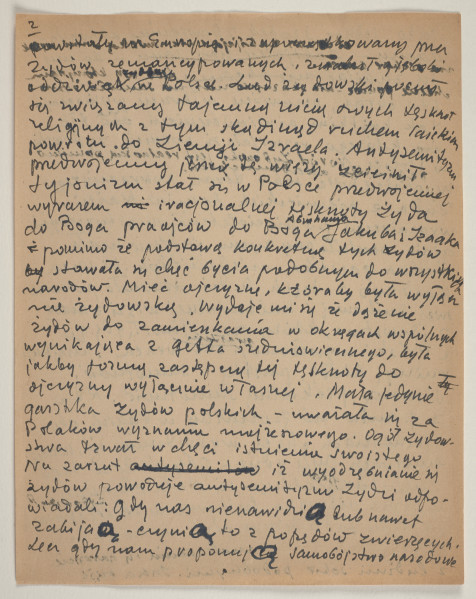 2
powstały w Europie i propagowany przez
żydów zemancypowanych,
oddźwięk w Polsce. Lud żydowski
się związany tajemną nicią owych tęsknot
religijnych z tym skądinąd ruchem laickim
powrotu do Ziemi Izraela. Antysemityzm
przedwojenny jeszcze tę więź zacieśnił
Syjonizm stał się w Polsce przedwojennej
wyrazem iracjonalnej tęsknoty Żyda
do Boga praojców do Boga Abrahama Jakuba i Izaaka
pomimo że podstawą konkretną tych Żydów
stawała się chęć bycia podobnym do wszystkich
narodów. Mieć ojczyznę, któraby była wyłącz-
nie żydowską. Wydaje mi się że dążenie
żydów do zamieszkania w okręgach wspólnych
wynikająca z getta średniowiecznego, była
jakby formą zastępczą tej tęsknoty do
ojczyzny wyłącznie własnej. Mała jedynie
garstka żydów polskich - uważała się za
Polaków wyznania mojżeszowego. Ogół żydow-
stwa trwał w chęci istnienia swoistego
Na zarzut antysemitów iż wyodrębnianie się
żydów powoduje antysemityzm Żydzi odpo-
wiadali: Gdy nas nienawidzą lub nawet
zabijają - czynią to z popędów zwierzęcych.
Lecz gdy nam proponują samobójstwo narodowe